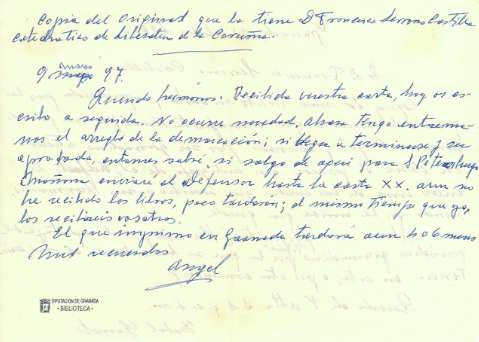 Copia del Original que la tiene D Francisco Serrano Castilla
catedratico de Literatura de la Coruña
Enero
9 mayo 97.
Querido hermanos: Recibida vuestra carta, hoy os es
cribo a seguida. No ocurre novedad, ahora tengo entre ma
nos el arreglo de la demarcación; si llega a terminarse y ser
aprobada, entonces sabré si salgo de aqui para S. Petersburgo
Mañana enviaré al Defensor hasta la carta XX. aun no
he recibido los libros, poco tardarán; al mismo tiempo que yo,
los recibiréis vosotros.
El que imprimo en Granada tardará aun 4 o 6 meses
Mil recuerdos
Angel
DIPUTACION DE GRANADA
- BIBLIOTECA -